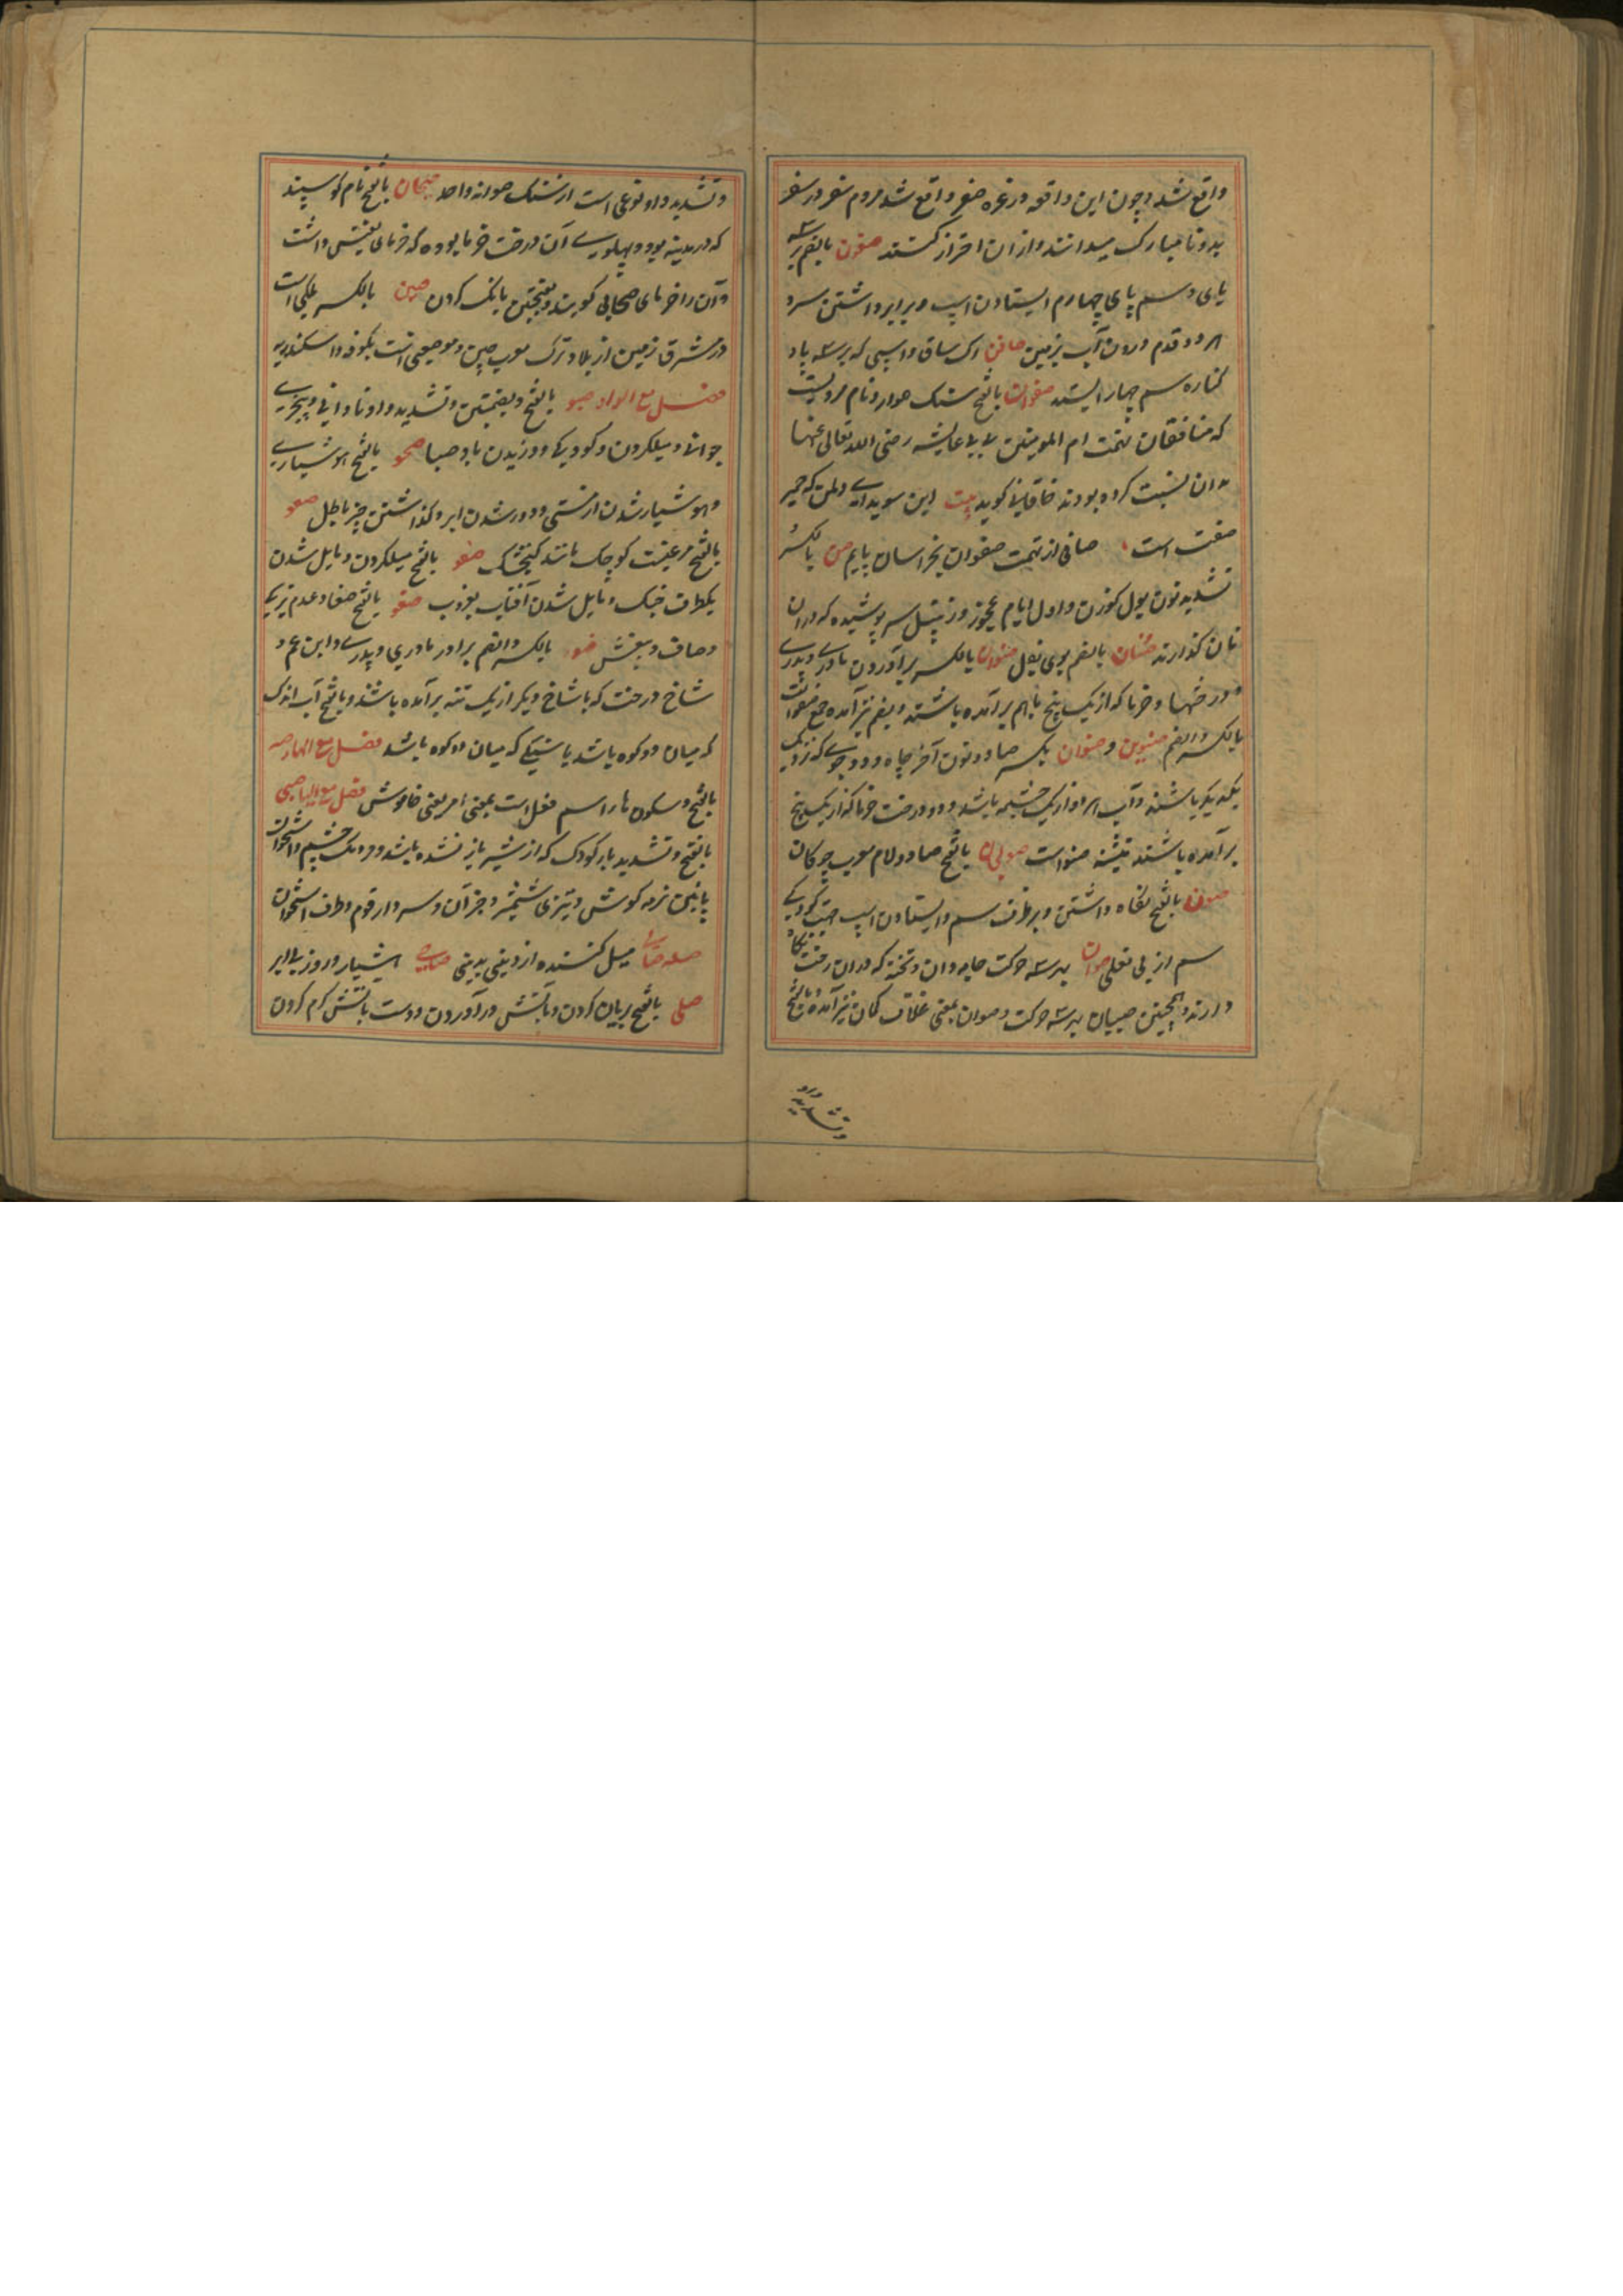 واقع شد و چون این واقعه در غره صفر واقع شد مردم سفر در سفر
بد و نامبارک میدانند و از ان احتراز کنند صفون بالضم بر سه
پای و سم پای چهارم ایستادن اسپ و برابر داشتن مرد
هر دو قدم و زدن آب بزمین صافن رک ساق و اسپی که بر سه پا و
کناره سم چهار ایستد صفوان بالفتح سنک هموار و نام مردیست
که منافقان تهمت ام المومنین بی بی عایشه رضی الله تعالی عنها
بدان نسبت کرده بودند خاقانی کوید بیت این سویدای دلمن که حمیر
صفت است صافی از تهمت صفوان بخراسان یابم صن بالکسر
تشدید نون بول کوزن و اول ایام عجوز و زنبیل سر پوشیده که دران
نان گذارند صنان بالضم بوی بغل صنوان بالکسر برادرون مادری و پدری
و درختها و خرما که از یک بیخ باهم برآمده باشند و بضم نیز آمده جمع صنوانت
بالکسر و الضم صنوین و صنوان بکسر صاد و نون آخر چاه و دو جوی که نزدیک
یکدیکر باشند و آب هر دو از یک چشمه باشد و دو درخت خرما که از یک بیخ
برآمده باشند تثنیه صنو است صولجان بالفتح صاد و لام معرب چوکان
صون بالفتح نکاه داشتن و بر طرف سم و ایستادن اسپ جهت کودیکی
سم از بی نعلی صوان بهر سه حرکت جامه دان و تخته که دران رخت نکاه
دارند و همچنین صیان بهر سه حرکت و صوان بمعنی غلاف کمان نیز آمده و بالفتح
و تشدید واو
و تشدید واو نوعی است از سنک صوانه واحد صیحان بالفتح نام کوسپند
که در مدینه بود و پهلوی آن درخت خرما بوده که خرمای نفیس داشت
و آن را خرمای صیحانی کویند و بفتحتین بانک کردن صین بالکسر ملکی است
در مشرق زمین از بلاد ترک معرب چین و موضعی است بکوفه و اسکندریه
فصل مع الواو صبو بالفتح و بضمتین و تشدید واو نادانی و بیخبری
جوانی و میلکردن و کودکی و وزیدن باد صبا صحو بالفتح هوشیاری
و هوشیار شدن از مستی و دور شدن ابر و گذاشتن چیز باطل صعو
بالفتح مرغیست کوچک مانند کنجشک صغو بالفتح میلکردن و مایل شدن
یکطرف خنک و مایل شدن آفتاب بغروب صفو بالفتح صفا و عدم تیرکی
و صاف و بیغش صنو بالکسر و الضم برادر مادری و پدری و ابن عم و
شاخ درخت که با شاخ دیکر از یک تنه برآمده باشند و بالفتح آب اندک
که میان دو کوه باشد یا سنکی که میان دو کوه باشد فصل مع الهاء صه
بالفتح و سکون ها اسم فعل است بمعنی امر یعنی خاموش فصل مع الیا صبی
بالفتح و تشدید یا کودک که از شیر باز نشده باشد و مردمک چشم و استخوان
پائین نرمه کوش و تیزی شمشیر و جز آن و سردار قوم و طرف استخوان
میل کننده از دینی بدینی هشیار و روز بی ابر
صلی بالفتح بریان کردن و بآتش درآوردن و دست بآتش گرم کردن